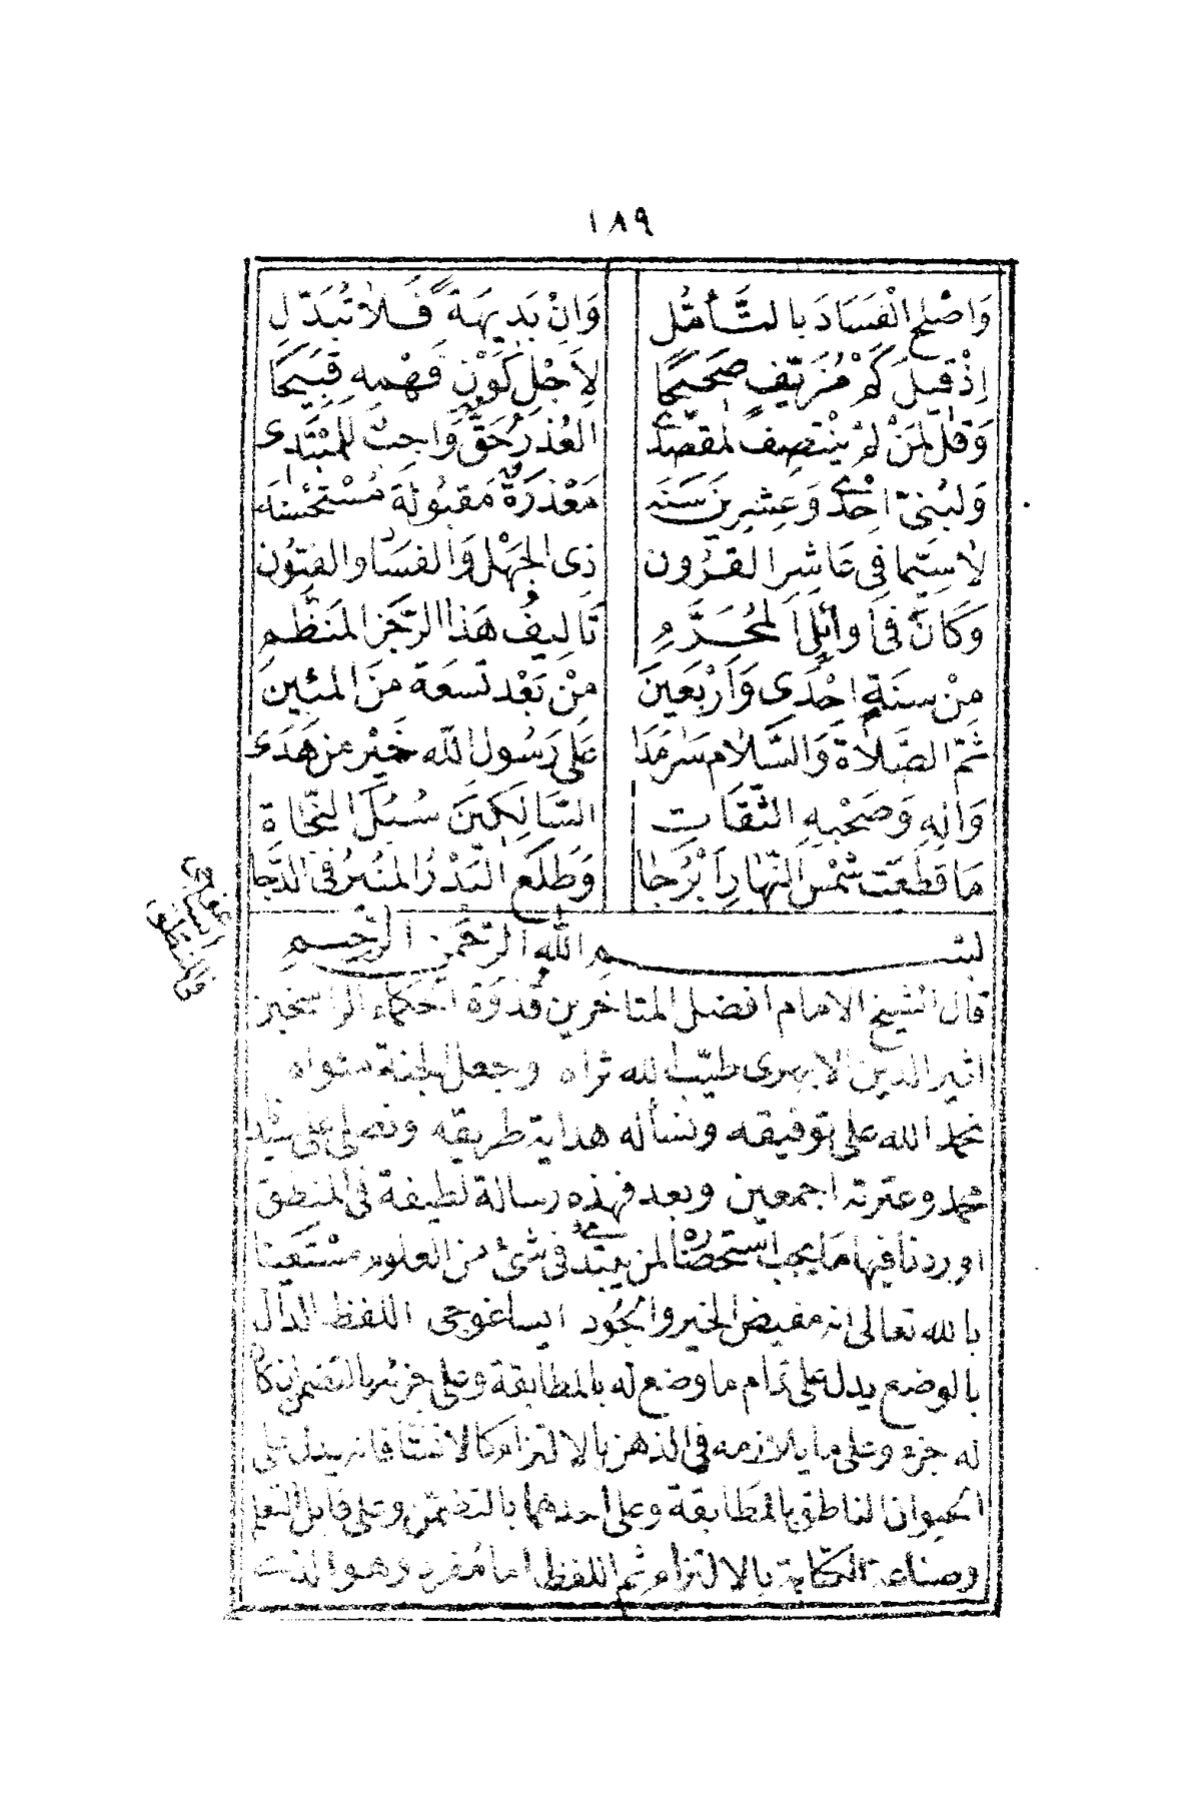 ١٨٩
وَاصْلِحِ الْفَسَادَ بِالتَّأَمُّلِ وَاِنْ بَدِيهَةً فَلَا تُبَدِّلِ
اِذْ قِيلَ كَمْ مُزَيِّفٍ صَحِيحًا لِاَجْلِ كَوْنِ فَهْمِهِ قَبِيحًا
وَقُلْ لِمَنْ لَمْ يَنْتَصِفْ لِمَقْصَدِى الْعُذْرُ حَقٌّ وَاجِبٌ لِلْمُبْتَدِى
وَلِبَنِى اِحْدَى وَعِشْرِينَ سَنَه مَعْذِرَةٌ مَقْبُولَةٌ مُسْتَحْسَنَه
لَاسِيَّمَا فِى عَاشِرِ الْقُرُونِ ذِى الْجَهْلِ وَالْفَسَادِ وَالْفُتُونِ
وَكَانَ فِى اَوَائِلِ الْمُحَرَّمِ تَالِيفُ هَذَا الرَّجَزِ الْمُنَظَّمِ
مِنْ سَنَةِ اِحْدَى وَاَرْبَعِينَ مِنْ بَعْدِ تِسْعَةٍ مِنَ الْمِئِينَ
ثُمَّ الصَّلَاةُ وَالسَّلَامُ سَرْمَدَا عَلَى رَسُولِ اللّٰهِ خَيْرِ مَنْ هَدَى
وَاٰلِهِ وَصَحْبِهِ الثِّقَاتِ السَّالِكِينَ سُبُلَ النَّجَاةِ
مَا قَطَعَتْ شَمْسُ النَّهَارِ اَبْرُجَا وَطَلَعَ الْبَدْرُ الْمُنِيرُ فِى الدُّجَا
ايساغوجى
فى المنطق
بِسْمِ اللّٰهِ الرَّحْمٰنِ الرَّحِيمِ
قال الشيخ الامام افضل المتاخرين قُدْوَة الحكماء الراسخين
اثير الدين الابهرى طيّب الله ثراه وجعل الجنة مثواه
نحمد الله على توفيقه ونسأله هداية طريقه ونصلى على سيد
محمد وعترته اجمعين وبعد فهذه رسالة لطيفة فى المنطق
اوردنا فيها مَا يجب استحضاره لمن يبتدى فى شئ من العلوم مستعينا
بالله تعالى انه مفيض الخير والجُود ايساغوجى اللفظ الدال
بالوضع يدل على تمام ما وضع له بالمطابقة وعلى جزئه بالتضمن ان كان
له جزء وعلى ما يلازمه فى الذهن بالالتزام كالانسان فانه يدل على
الحيوان الناطق بالمطابقة وعلى احدهما بالتضمن وعلى قابل التعلم
وصناعة الكتابة بالالتزام ثم اللفظ اما مُفرد وهو الذى